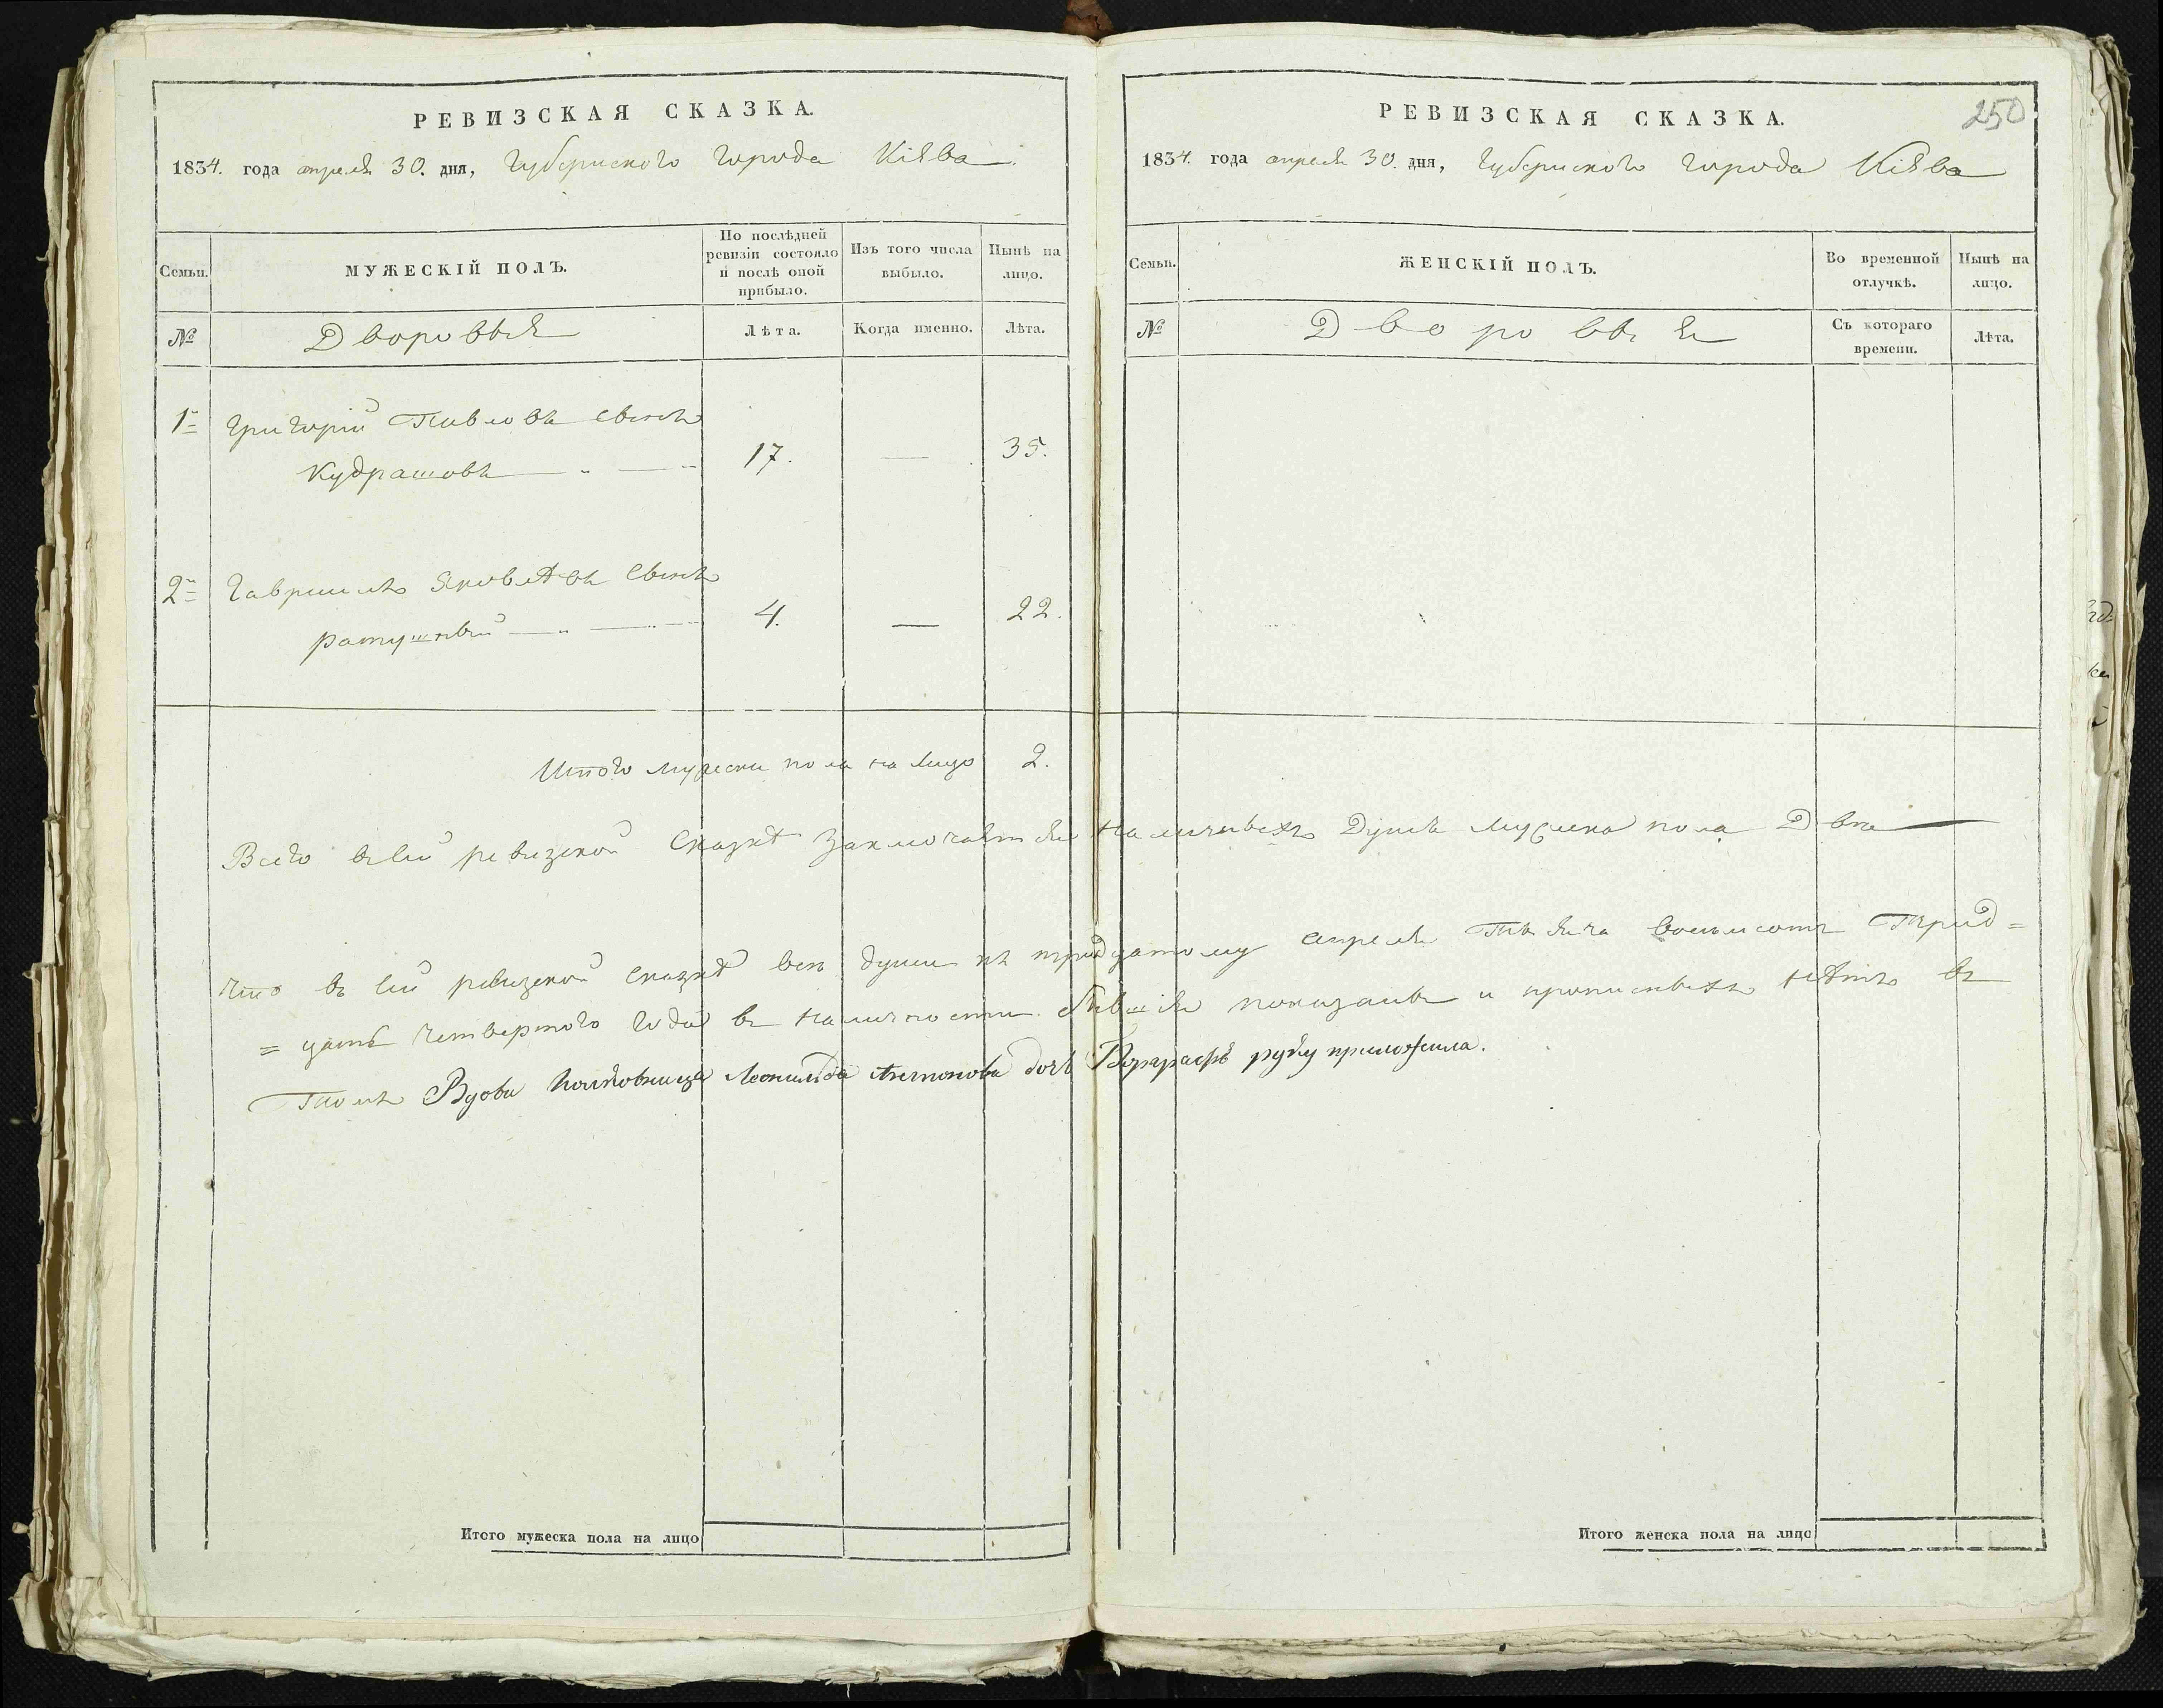 РЕВИЗСКАЯ СКАЗКА.
1834. года апреля 30. дня, Губернского города Кіѣва
Семьи.
МУЖЕСКІЙ ПОЛЪ.
По послѣдней ревизіи состояло и послѣ оной прибыло.
Изъ того числа выбыло.
Нынѣ на лицо.
№
Дворовыя
Лѣта.
Когда именно.
Лѣта.
1 Григорій Павловъ сынъ
Кудрашовъ 17. — 35.
2 Гавриилъ Яковлѣвъ сынъ
ратушный 4. — 22.
Итого мужеска пола на лицо 2.
РЕВИЗСКАЯ СКАЗКА.
250
1834. года апреля 30. дня, Губернского города Кіѣва
Семьи.
ЖЕНСКІЙ ПОЛЪ.
Во временной отлучкѣ.
Нынѣ на лицо.
№
Дворовыя
Съ котораго времени.
Лѣта.
Всего въ сей ревизской сказкѣ заключаѣтся наличныхъ душъ мужеска пола Двѣ
Что въ сей ревизской сказкѣ все души къ тридцатому апреля тысяча восемьсотъ трид=
=цать четвертого года въ наличности бывшія показаны и прописныхъ нѣтъ въ
томъ Вдова Полковница Леонильда Антонова дочъ руку приложила.
Итого мужеска пола на лицо
Итого женска пола на лицо